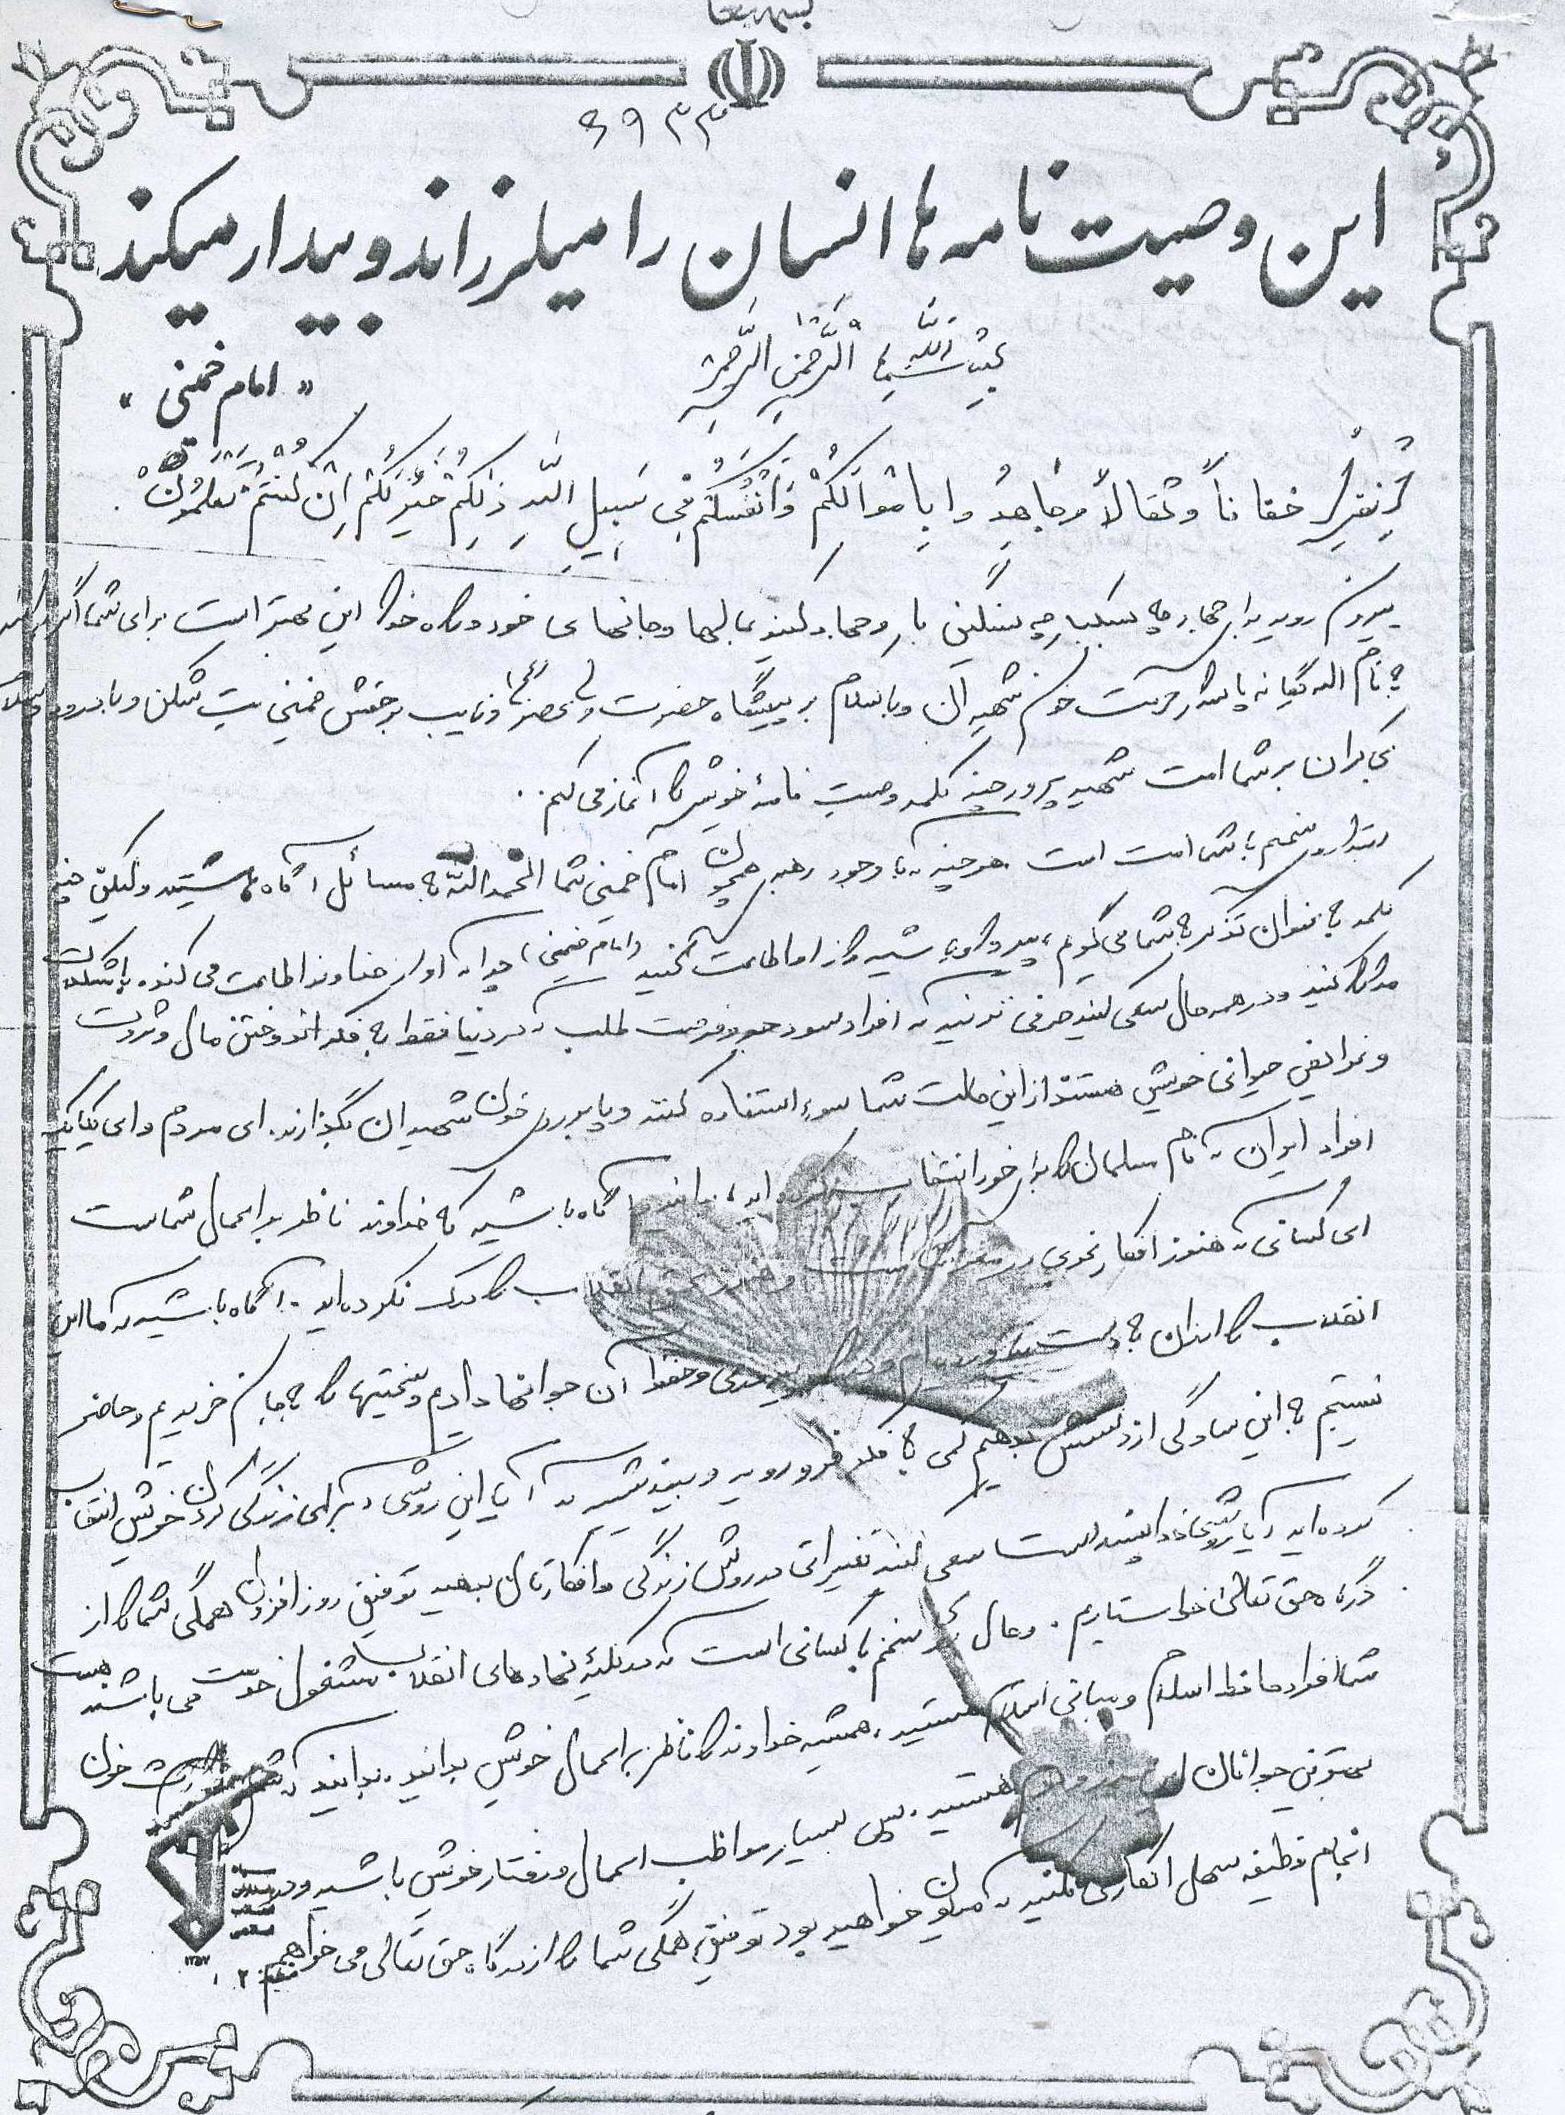 بسمه تعالی
۶۹۳۳
این وصیت نامه ها انسان را میلرزاند و بیدار میکند
بِسْمِ اللَّهِ الرَّحْمنِ الرَّحیمْ
«امام خمینی»
اِنْفِرُوا خفافاً وَ ثقالاً وَ جاهِدُوا بِاَمْوالِکُمْ وَ اَنْفُسِکُمْ فی سَبیلِ اللهِ ذلِکُمْ خَیْرٌ لَکُمْ اِنْ کُنْتُمْ تَعْلَمُونْ.
بیرون روید برای جهاد چه سبکبار چه سنگین بار و جهاد کنید بمالها و جانهای خود در راه خدا این بهتر است برای شما اگر
به نام الله یگانه پاسدار حرمت خون شهیدان و با سلام بر پیشگاه حضرت ولی عصر (عج) و نایب بر حقش خمینی بت شکن و با درود و سلام
بی کران بر شما امت شهید پرور چند کلمه وصیت نامۀ خویش را آغاز می کنم..
ابتدا روی سخنم با شما امت است هر چند که با وجود رهبر همچون امام خمینی شما الحمدالله به مسائل آگاه هستید ولیکن چند
کلمه به عنوان تذکر به شما می گویم، پیرو باشید و از او اطاعت کنید (امام خمینی) چرا که او از خداوند اطاعت می کند. با مشکلات
مدارا کنید و در همه حال سعی کنید حرفی نزنید که افراد سودجو و فرصت طلب که در دنیا فقط به فکر اندوختن مال و ثروت
و غرایض حیوانی خویش هستند از این حالت شما سوء استفاده کنند و پا بر روی خون شهیدان بگذارند. ای مردم و ای یکایک
افراد ایران که نام مسلمان را برای خود انتخاب کرده اید، بدانید و آگاه باشید که خداوند ناظر بر اعمال شماست
ای کسانی که هنوز افکار غربی در مغزتان است و هنوز انقلاب را درک نکرده اید. آگاه باشید که ما این
انقلاب را ارزان به دست نیاورده ایم و و حفظ آن جوانها دادیم و سختیها را به جان خریدیم و حاضر
نیستیم به این سادگی از دستش بدهیم کمی به فکر فرو روید و بیندیشید که آیا این روشی که برای زندگی کردن خویش انتخاب
کرده اید آیا روش خداپسند است سعی کنید تغییراتی در روش زندگی و افکارتان بدهید توفیق روز افزون همگی شما را از
درگاه حق تعالی خواستارم. و حال سخنم با کسانی است که در کلیۀ نهادهای انقلاب مشغول خدمت می باشند
شما افراد حافظ اسلام و مبانی اسلام هستید، همیشه خداوند را ناظر بر اعمال خویش بدانید. بدانید که خون
بهترین جوانان این مرز و بوم هستید، پس بسیار مواظب اعمال و رفتار خویش باشید و در
انجام وظیفه سهل انگاری نکنید که مدیون خواهید بود توفیق همگی شما را از درگاه حق تعالی می خواهم
سپاه
پاسداران
انقلاب
اسلامی
۱۳۵۷
منطقه ۲